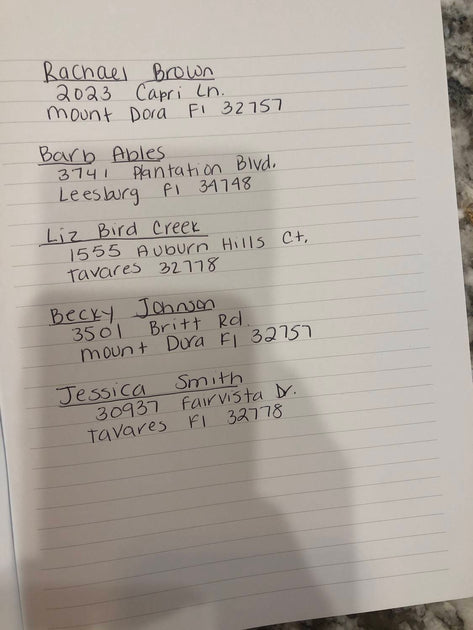 Rachael Brown
2023 Capri Ln.
Mount Dora Fl 32757
Barb Ables
3741 Plantation Blvd.
Leesburg Fl 34748
Liz Bird Creek
1555 Auburn Hills Ct.
Tavares 32778
Becky Johnson
3501 Britt Rd.
Mount Dora Fl 32757
Jessica Smith
30937 Fairvista Dr.
Tavares Fl 32778